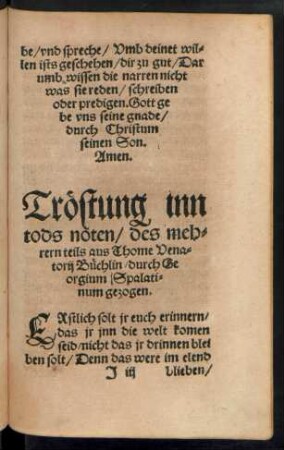 be/vnd spreche/ Vmb deinet wil-
len ists geschehen/dir zu gut/Dar
umb wissen die narren nicht
was sie reden/ schreiben
oder predigen. Gott ge
be vns seine gnade/
durch Christum
seinen Son.
Amen.
Tröstung inn
tods nöten/ des meh-
rern teils aus Thome Vena-
torij Büchlin/durch Ge
orgium Spalati-
num gezogen.
ERstlich solt jr euch erinnern/
das jr jnn die welt komen
seid/nicht das jr drinnen blei
ben solt/ Denn das were im elend
J iij blieben/